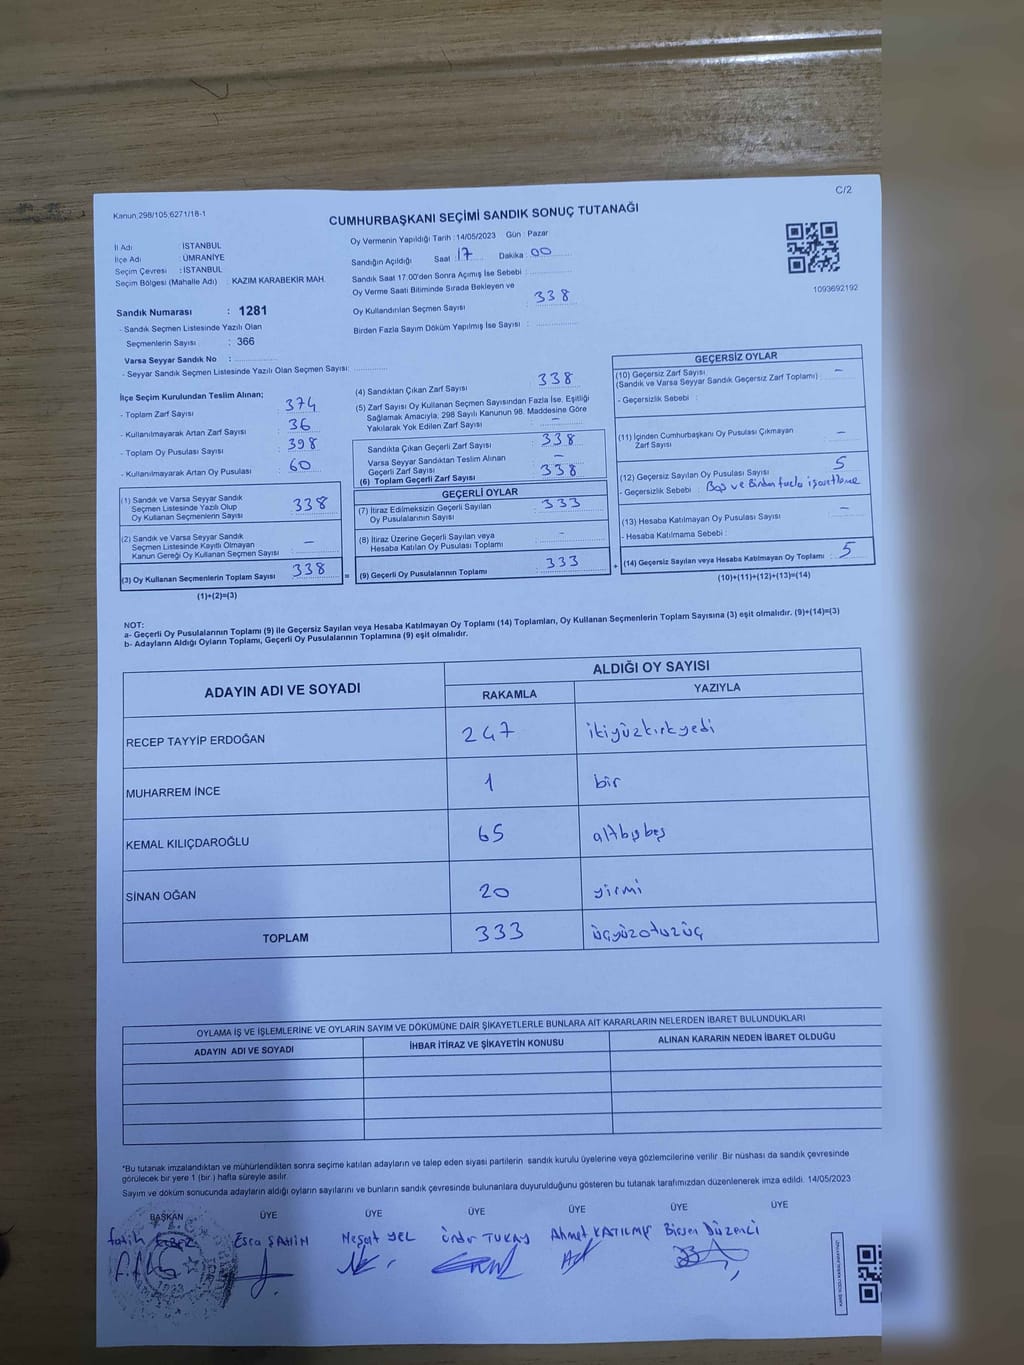 C/2
Kanun,298/105,6271/18-1
CUMHURBAŞKANI SEÇİMİ SANDIK SONUÇ TUTANAĞI
İl Adı : İSTANBUL
İlçe Adı : ÜMRANİYE
Seçim Çevresi : İSTANBUL
Seçim Bölgesi (Mahalle Adı) : KAZIM KARABEKİR MAH.
Oy Vermenin Yapıldığı Tarih : 14/05/2023 Gün : Pazar
Sandığın Açıldığı Saat : 17 Dakika : 00
Sandık Saat 17.00'den Sonra Açımış İse Sebebi :
Oy Verme Saati Bitiminde Sırada Bekleyen ve
Oy Kullandırılan Seçmen Sayısı : 338
Birden Fazla Sayım Döküm Yapılmış İse Sayısı :
1093692192
Sandık Numarası : 1281
- Sandık Seçmen Listesinde Yazılı Olan
Seçmenlerin Sayısı : 366
Varsa Seyyar Sandık No :
- Seyyar Sandık Seçmen Listesinde Yazılı Olan Seçmen Sayısı:
İlçe Seçim Kurulundan Teslim Alınan;
- Toplam Zarf Sayısı : 374
- Kullanılmayarak Artan Zarf Sayısı : 36
- Toplam Oy Pusulası Sayısı : 398
- Kullanılmayarak Artan Oy Pusulası : 60
(1) Sandık ve Varsa Seyyar Sandık
Seçmen Listesinde Yazılı Olup
Oy Kullanan Seçmenlerin Sayısı : 338
(2) Sandık ve Varsa Seyyar Sandık
Seçmen Listesinde Kayıtlı Olmayan
Kanun Gereği Oy Kullanan Seçmen Sayısı : –
(3) Oy Kullanan Seçmenlerin Toplam Sayısı : 338
(1)+(2)=(3)
(4) Sandıktan Çıkan Zarf Sayısı : 338
(5) Zarf Sayısı Oy Kullanan Seçmen Sayısından Fazla İse, Eşitliği
Sağlamak Amacıyla, 298 Sayılı Kanunun 98. Maddesine Göre
Yakılarak Yok Edilen Zarf Sayısı : –
Sandıkta Çıkan Geçerli Zarf Sayısı : 338
Varsa Seyyar Sandıktan Teslim Alınan
Geçerli Zarf Sayısı : –
(6) Toplam Geçerli Zarf Sayısı : 338
GEÇERLİ OYLAR
(7) İtiraz Edilmeksizin Geçerli Sayılan
Oy Pusulalarının Sayısı : 333
(8) İtiraz Üzerine Geçerli Sayılan veya
Hesaba Katılan Oy Pusulası Toplamı : -
= (9) Geçerli Oy Pusulalarının Toplamı : 333
GEÇERSİZ OYLAR
(10) Geçersiz Zarf Sayısı
(Sandık ve Varsa Seyyar Sandık Geçersiz Zarf Toplamı) : –
- Geçersizlik Sebebi :
(11) İçinden Cumhurbaşkanı Oy Pusulası Çıkmayan
Zarf Sayısı : –
(12) Geçersiz Sayılan Oy Pusulası Sayısı : 5
- Geçersizlik Sebebi : Boş ve Birden fazla işaretleme
(13) Hesaba Katılmayan Oy Pusulası Sayısı : –
- Hesaba Katılmama Sebebi :
+ (14) Geçersiz Sayılan veya Hesaba Katılmayan Oy Toplamı : 5
(10)+(11)+(12)+(13)=(14)
NOT:
a- Geçerli Oy Pusulalarının Toplamı (9) ile Geçersiz Sayılan veya Hesaba Katılmayan Oy Toplamı (14) Toplamları, Oy Kullanan Seçmenlerin Toplam Sayısına (3) eşit olmalıdır. (9)+(14)=(3)
b- Adayların Aldığı Oyların Toplamı, Geçerli Oy Pusulalarının Toplamına (9) eşit olmalıdır.
ADAYIN ADI VE SOYADI ALDIĞI OY SAYISI
RAKAMLA YAZIYLA
RECEP TAYYİP ERDOĞAN 247 ikiyüzkırkyedi
MUHARREM İNCE 1 bir
KEMAL KILIÇDAROĞLU 65 altbışbeş
SİNAN OĞAN 20 yirmi
TOPLAM 333 üçyüzotuzüç
OYLAMA İŞ VE İŞLEMLERİNE VE OYLARIN SAYIM VE DÖKÜMÜNE DAİR ŞİKAYETLERLE BUNLARA AİT KARARLARIN NELERDEN İBARET BULUNDUKLARI
ADAYIN ADI VE SOYADI İHBAR İTİRAZ VE ŞİKAYETİN KONUSU ALINAN KARARIN NEDEN İBARET OLDUĞU
*Bu tutanak imzalandıktan ve mühürlendikten sonra seçime katılan adayların ve talep eden siyasi partilerin sandık kurulu üyelerine veya gözlemcilerine verilir. Bir nüshası da sandık çevresinde
görülecek bir yere 1 (bir) hafta süreyle asılır.
Sayım ve döküm sonucunda adayların aldığı oyların sayılarını ve bunların sandık çevresinde bulunanlara duyurulduğunu gösteren bu tutanak tarafımızdan düzenlenerek imza edildi. 14/05/2023
BAŞKAN ÜYE ÜYE ÜYE ÜYE ÜYE
fatih Esra ŞAHİN Meşat YEL Önder TUKAY Ahmet KATILMIŞ Birsen Düzenci